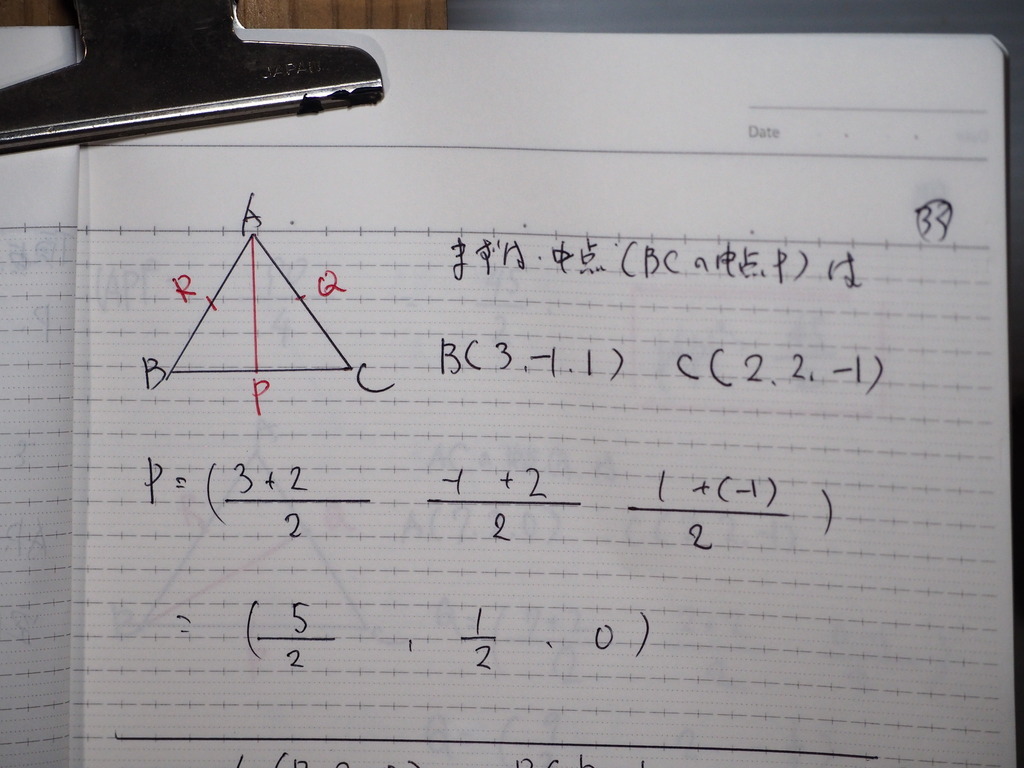 JAPAN
Date
33
A
まずは、中点 (BCの中点、P) は
R Q
B P C
B(3, -1, 1) C(2, 2, -1)
P = ( 3+2/2 -1+2/2 1+(-1)/2 )
= ( 5/2 , 1/2 , 0 )